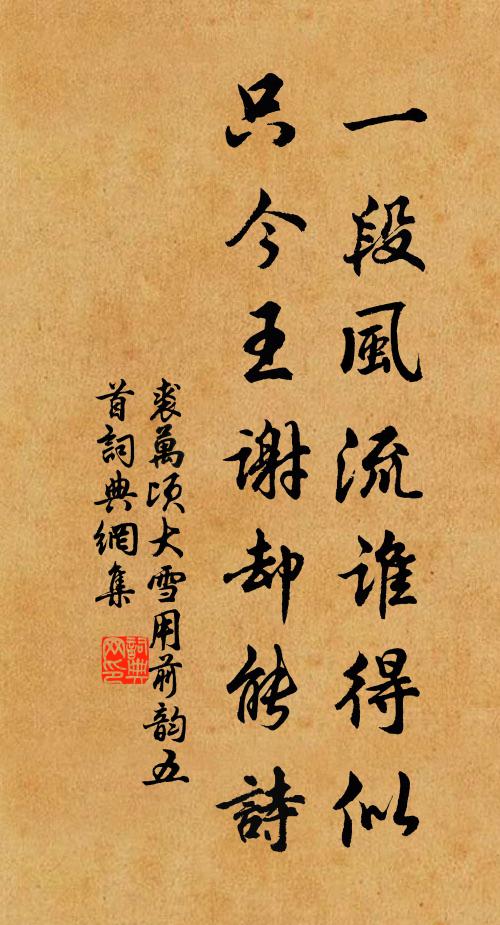 一段風流誰得似
只今王謝却能詩
裘萬頃大雪用前韵五
首詞典網集
詞典
网印